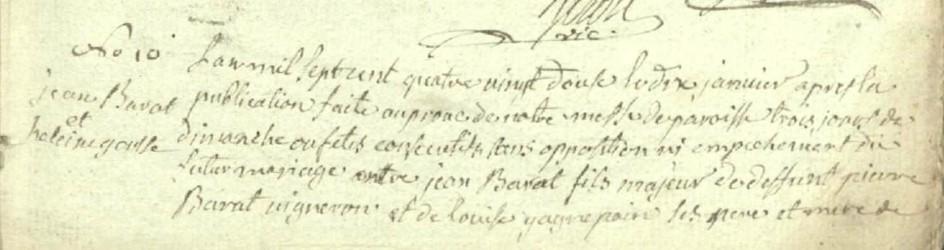 vic.
No 10
jean Barat
et
heleine gasse
Lan mil sept cent quatre vingt douse le dix janvier apres la
publication faite au prone de notre messe de paroisse trois jours de
dimanche ou fetes consecutifs sans opposition ni empechement du
futur mariage entre jean Barat fils majeur de deffunt pierre
Barat vigneron et de louise gagnepain ses pere et mere de